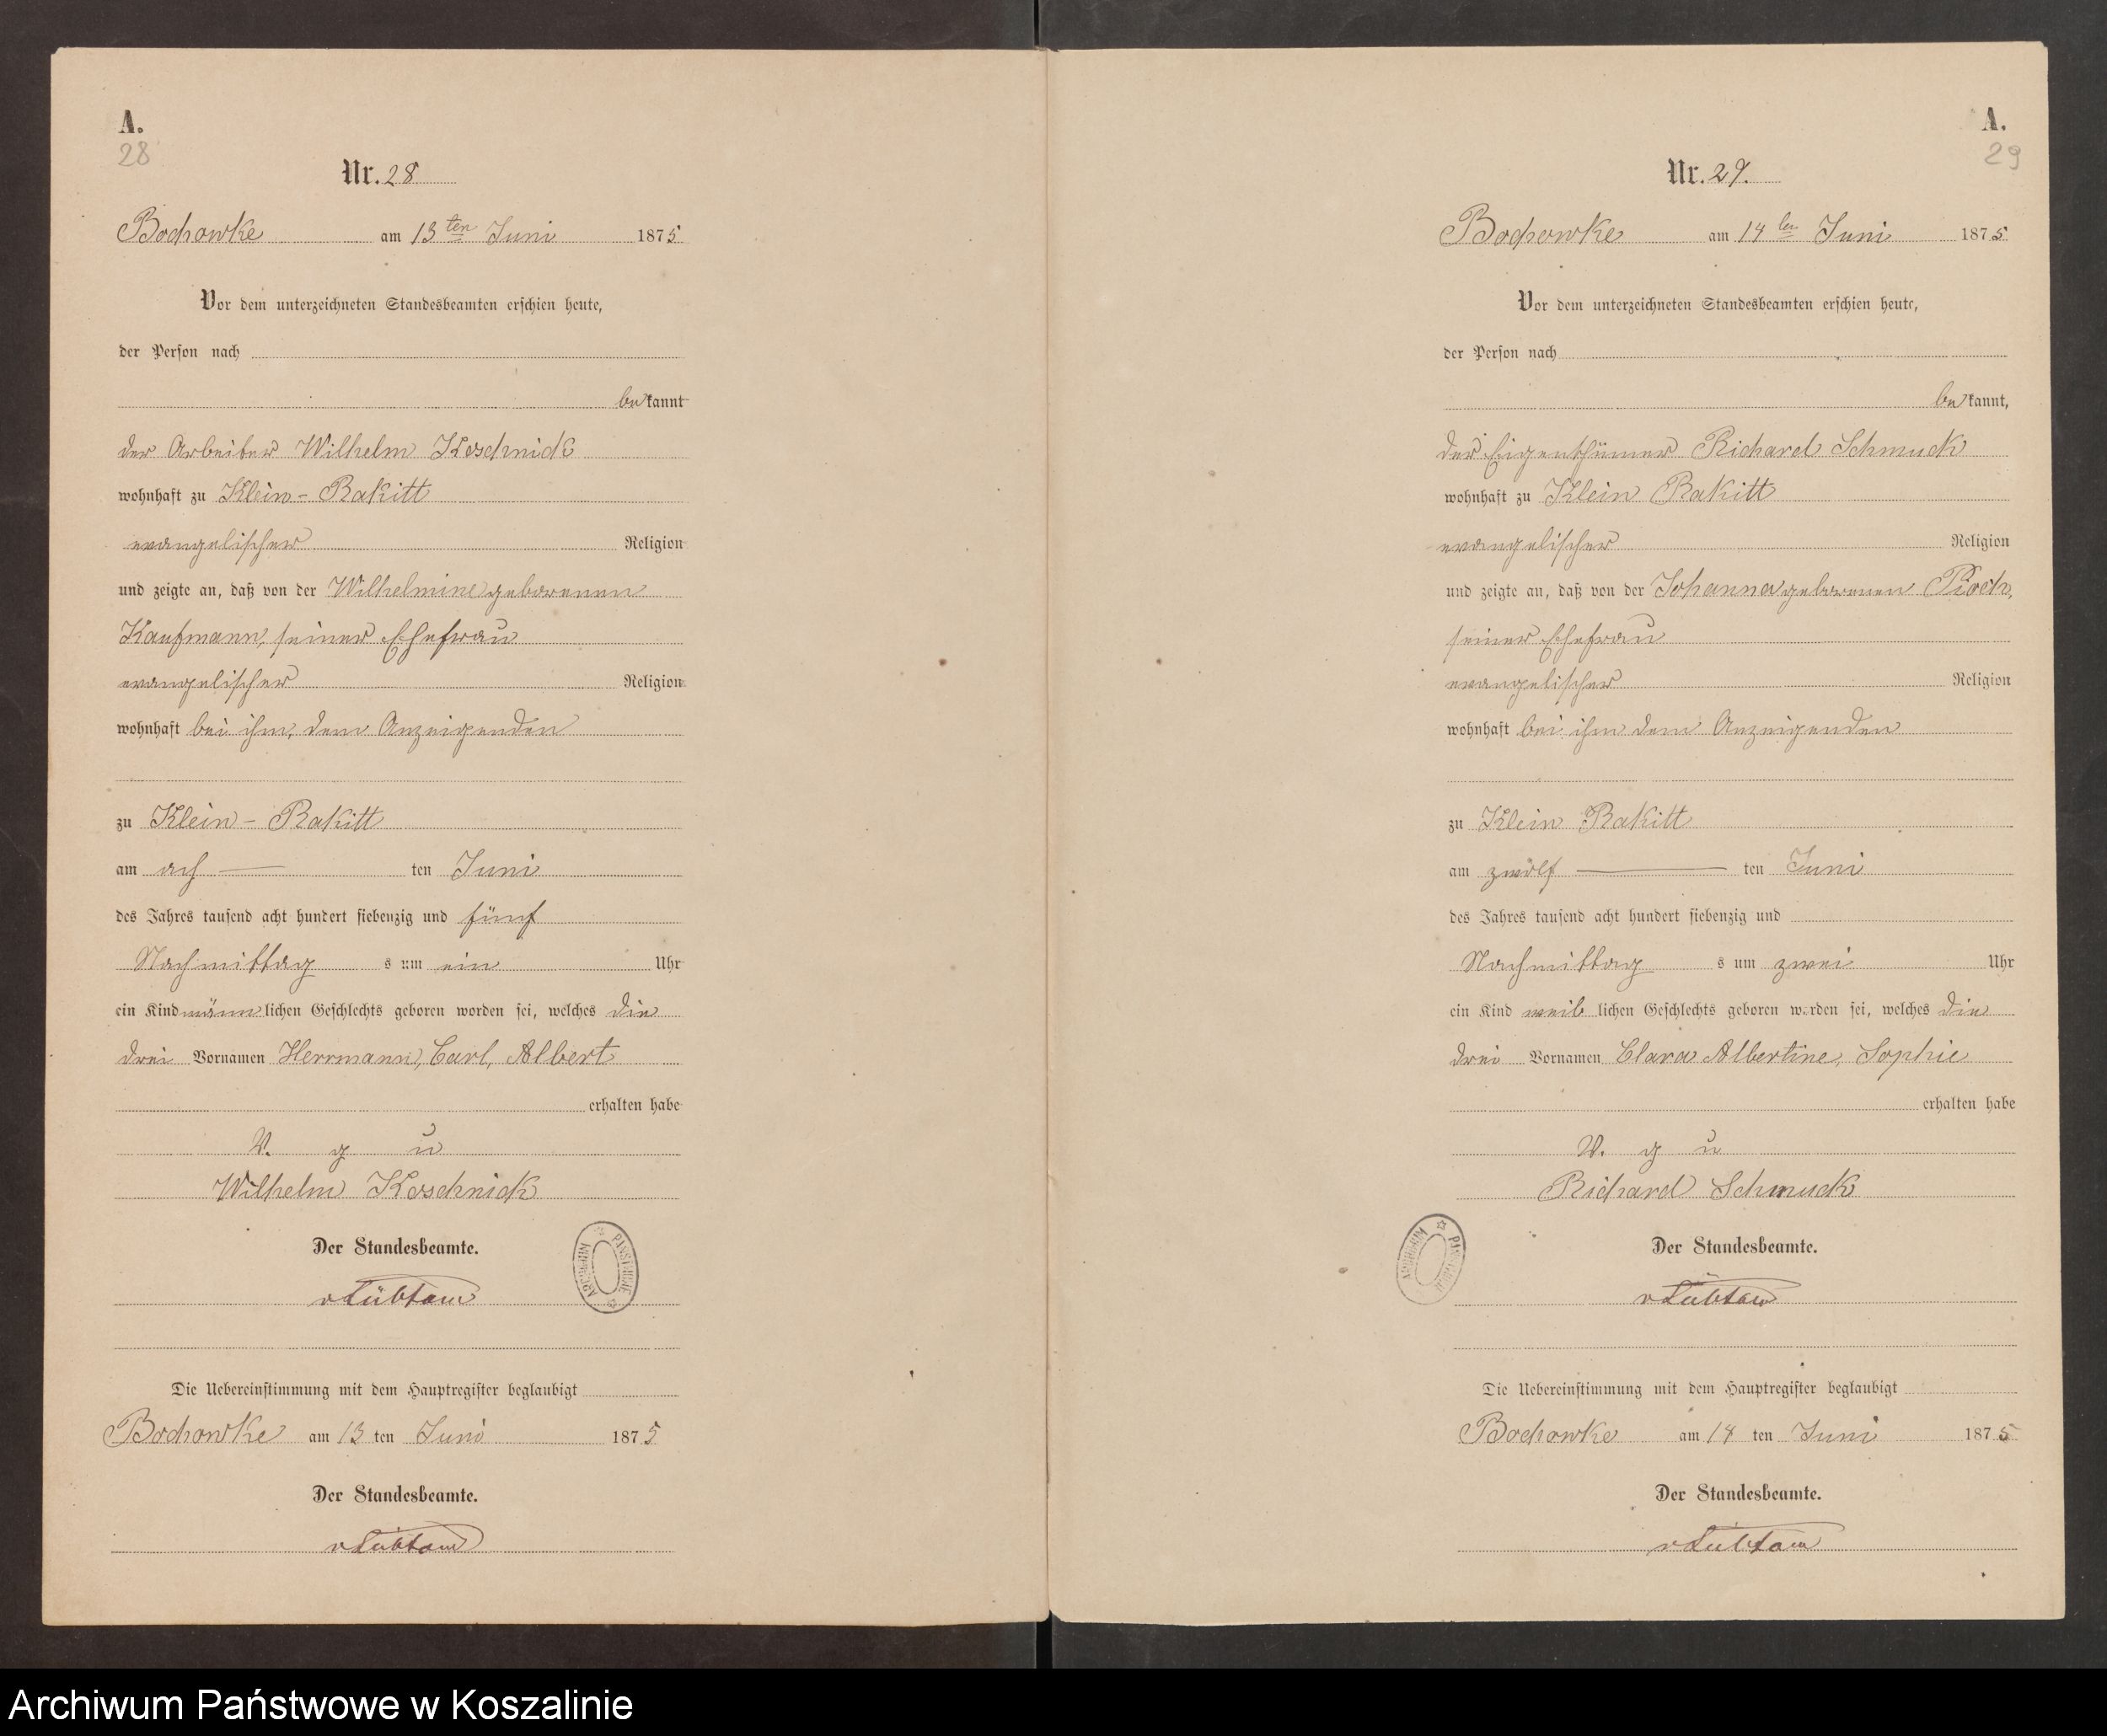 A.
28
Nr. 28
Bochowke am 13ten Juni 1875
Vor dem unterzeichneten Standesbeamten erschien heute,
der Person nach
bekannt
der Arbeiter Wilhelm Koschnick
wohnhaft zu Klein-Rakitt
evangelischer Religion
und zeigte an, daß von der Wilhelmine geborenen
Kaufmann, seiner Ehefrau
evangelischer Religion
wohnhaft bei ihm, dem Anzeigenden
zu Klein-Rakitt
am ach — ten Juni
des Jahres tausend acht hundert siebenzig und fünf
Nachmittag s um ein Uhr
ein Kind männlichen Geschlechts geboren worden sei, welches die
drei Vornamen Herrmann, Carl, Albert
erhalten habe
V. g u
Wilhelm Koschnick
Der Standesbeamte.
ARCHIWUM PAŃSTWOWE
Die Uebereinstimmung mit dem Hauptregister beglaubigt
Bochowke am 13 ten Juni 1875
Der Standesbeamte.
A.
29
Nr. 29.
Bochowke am 14ten Juni 1875
Vor dem unterzeichneten Standesbeamten erschien heute,
der Person nach
bekannt,
der Eigenthümer Richard Schmuck
wohnhaft zu Klein Rakitt
evangelischer Religion
und zeigte an, daß von der Johanna geborenen
seiner Ehefrau
evangelischer Religion
wohnhaft bei ihm dem Anzeigenden
zu Klein Rakitt
am zwölf — ten Juni
des Jahres tausend acht hundert siebenzig und
Nachmittag s um zwei Uhr
ein Kind weiblichen Geschlechts geboren worden sei, welches die
drei Vornamen Clara Albertine, Sophie
erhalten habe
V. g u
Richard Schmuck
Der Standesbeamte.
ARCHIWUM PAŃSTWOWE
Die Uebereinstimmung mit dem Hauptregister beglaubigt
Bochowke am 14 ten Juni 1875
Der Standesbeamte.
Archiwum Państwowe w Koszalinie